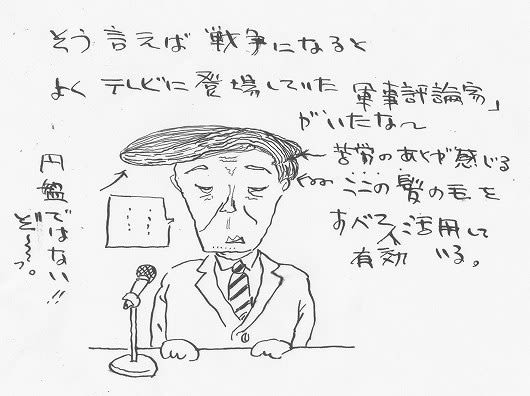 そう言えば戦争になると
よくテレビに登場していた軍事評論家」
がいたな〜
苦労のあとが感じる
ここの髪の毛を
すべて活用して
有効 いる。
円盤ではない!!
ぞ〜〜っ。